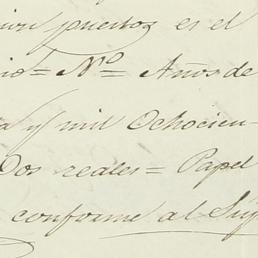 puertos es el
= Nº = Años de
y mil Ochocien-
Dos reales = Papel
conforme al